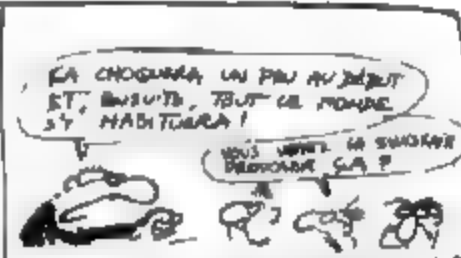 ÇA CHOQUERA UN PEU AU DÉBUT
ET, ENSUITE, TOUT LE MONDE
S'Y HABITUERA !
VOUS
ÇA ?